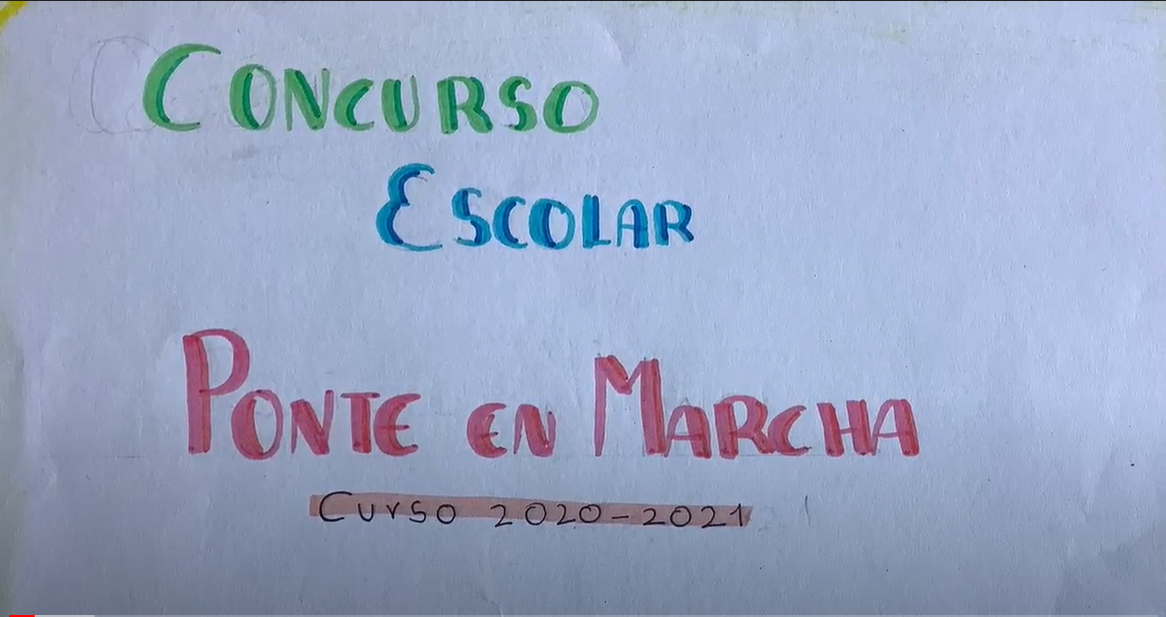 CONCURSO
ESCOLAR
PONTE EN MARCHA
Curso 2020-2021